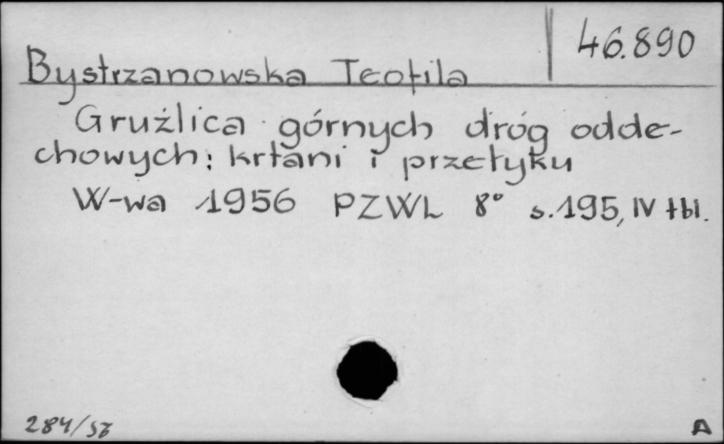 46.890
Bystrzanowska Teofila
Gruźlica górnych dróg odde-
chowych: krtani i przełyku
W-wa 1956 PZWL 8° s.195, IV tbl.
284/56
A